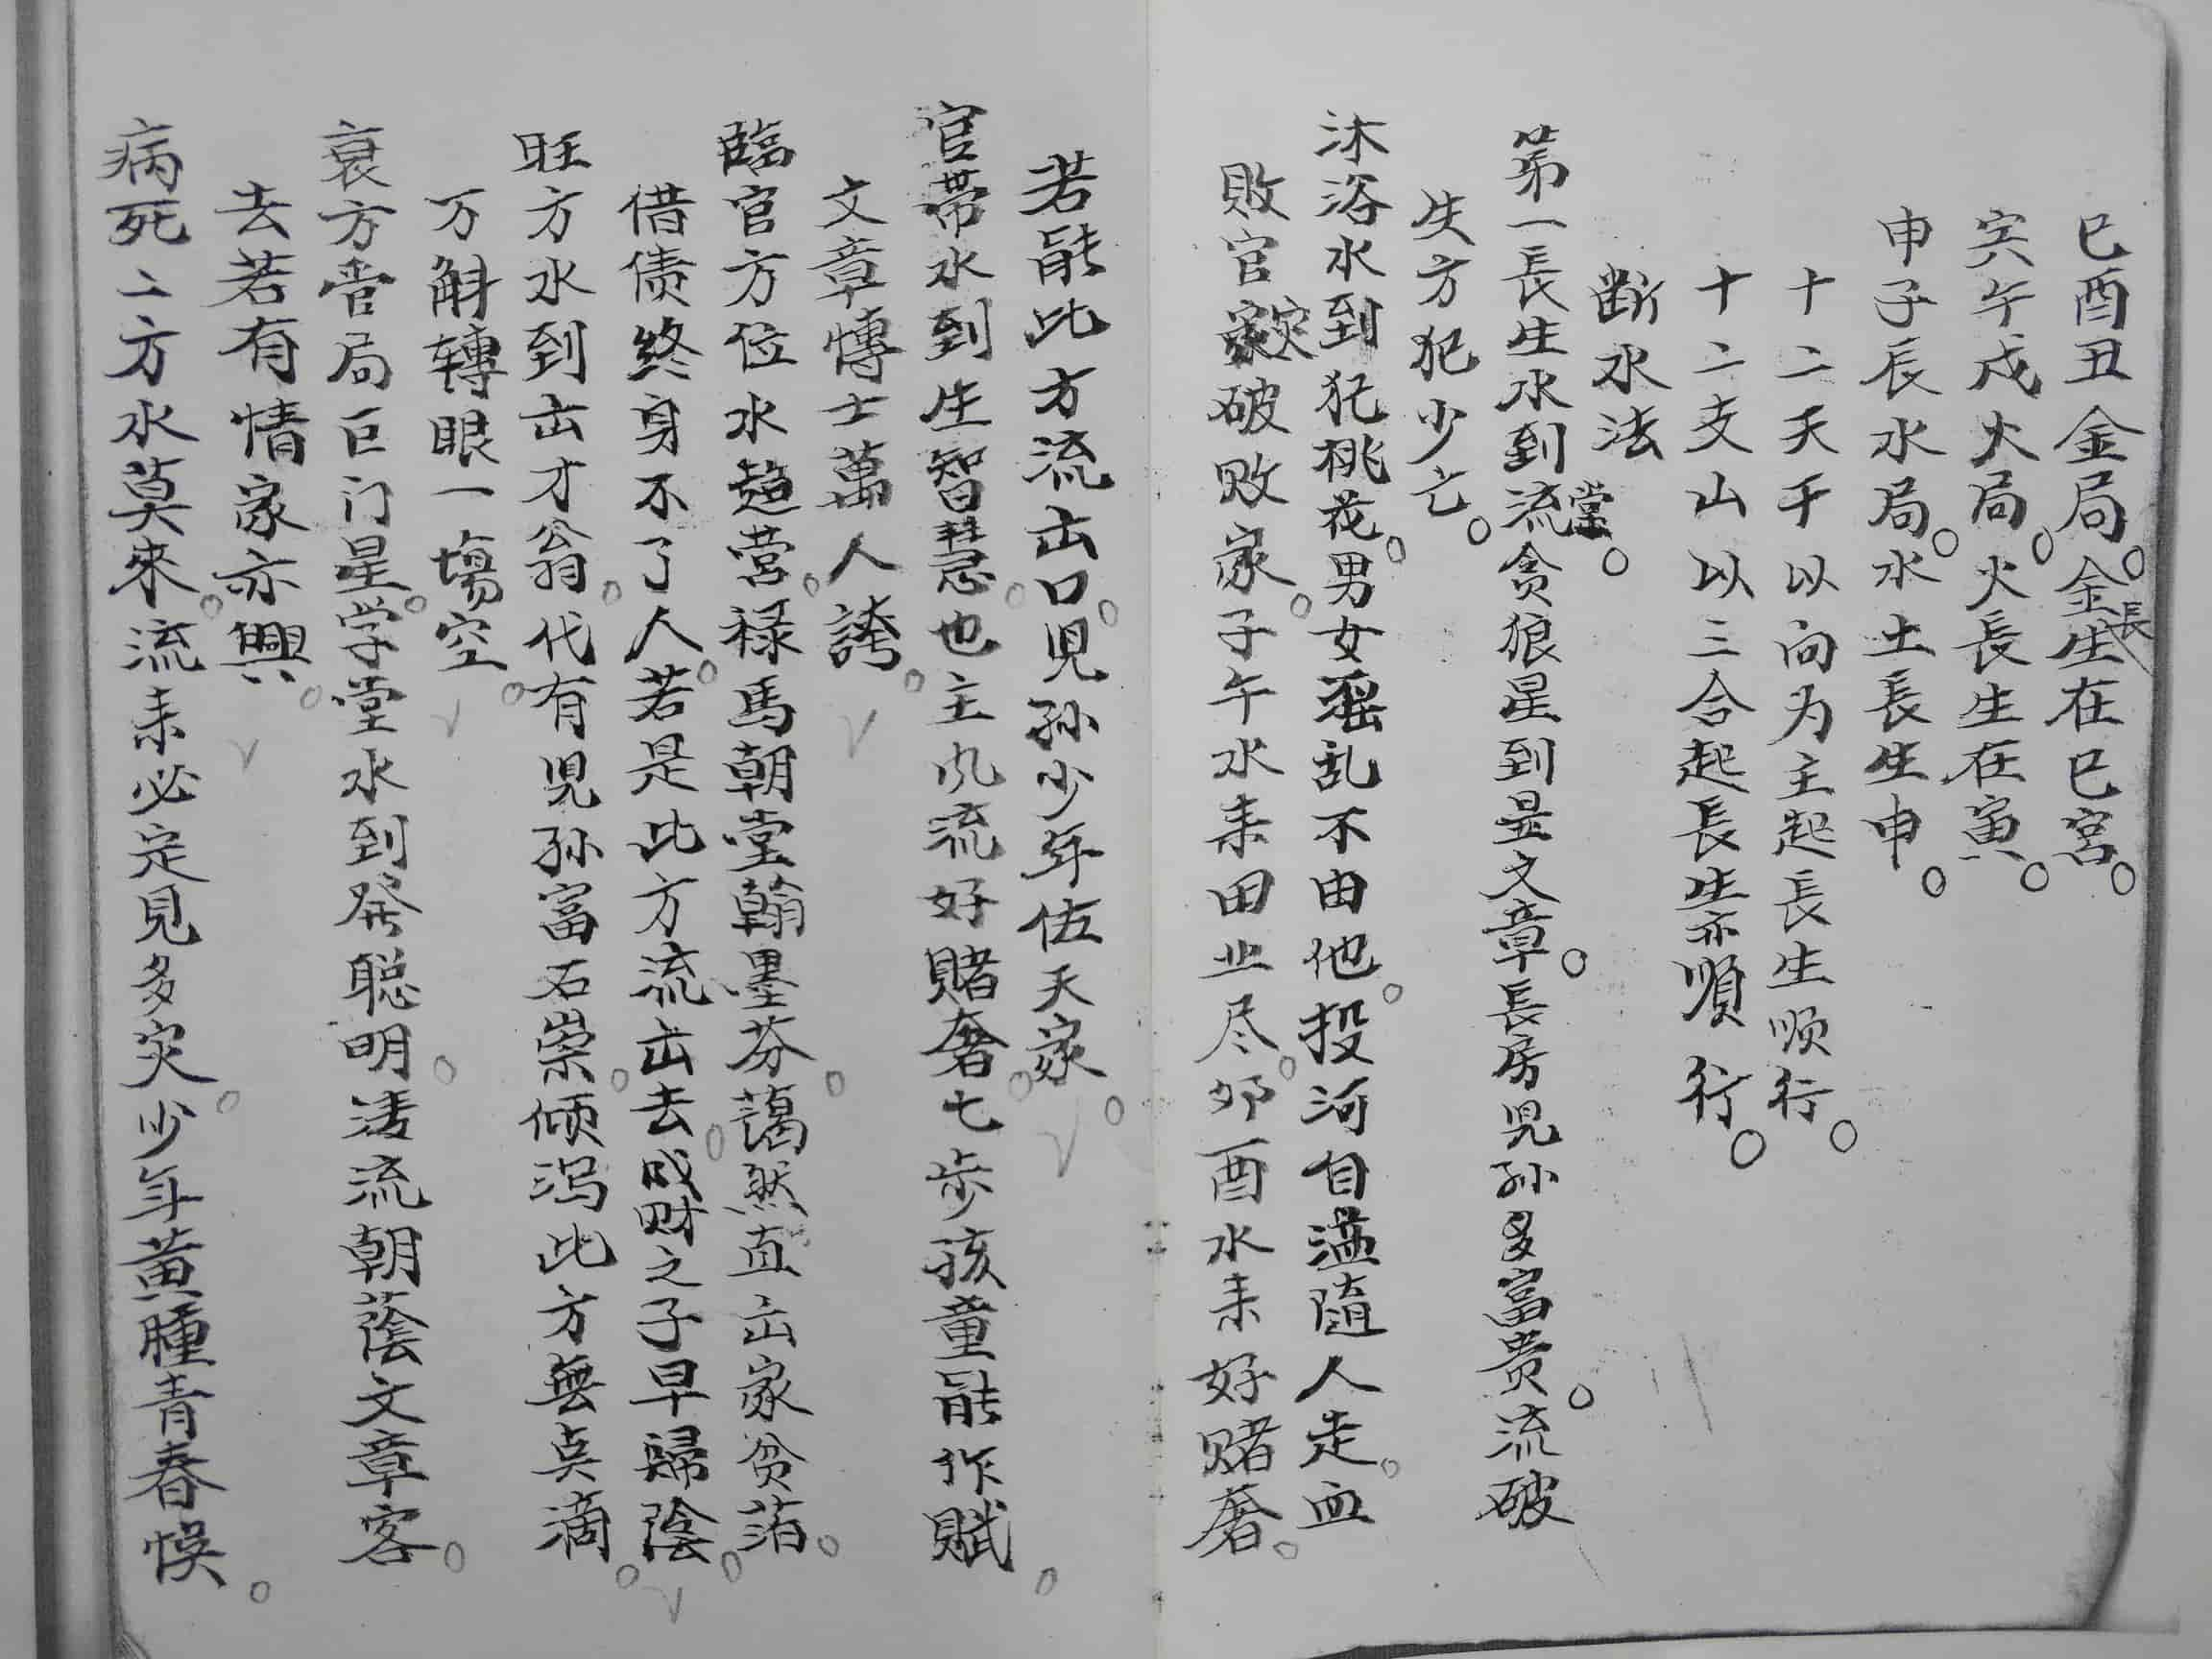 巳酉丑金局。金長生在巳宮。
寅午戌火局。火長生在寅。
申子辰水局。水土長生申。
十二天干以向为主起長生顺行。
十二支山以三合起長生亦順行。
断水法
第一長生水到流堂。贪狼星到显文章。長房児孙多富贵。流破
失方犯少亡。
沐浴水到犯桃花。男女滛乱不由他。投河自溢隨人走。血
敗官灾破败家。子午水耒田业尽。卯酉水耒好赌奢。
若能此方流出口。児孙少年伍天家。
官带水到生智慧。也主风流好賭奢。七步孩童能作赋。
文章博士萬人誇。
臨官方位水超营。禄馬朝堂翰墨芬。蔼然直出家贫萡。
借债终身不了人。若是此方流出去。成财之子早歸陰。
旺方水到出才翁。代有児孙富石崇。倾泻此方無点滴。
万斛轉眼一塲空。
衰方管局巨门星。学堂水到発聪明。清流朝蔭文章客。
去若有情家亦興。
病死二方水莫來。流耒必定見多灾。少年黄腫青春悮。